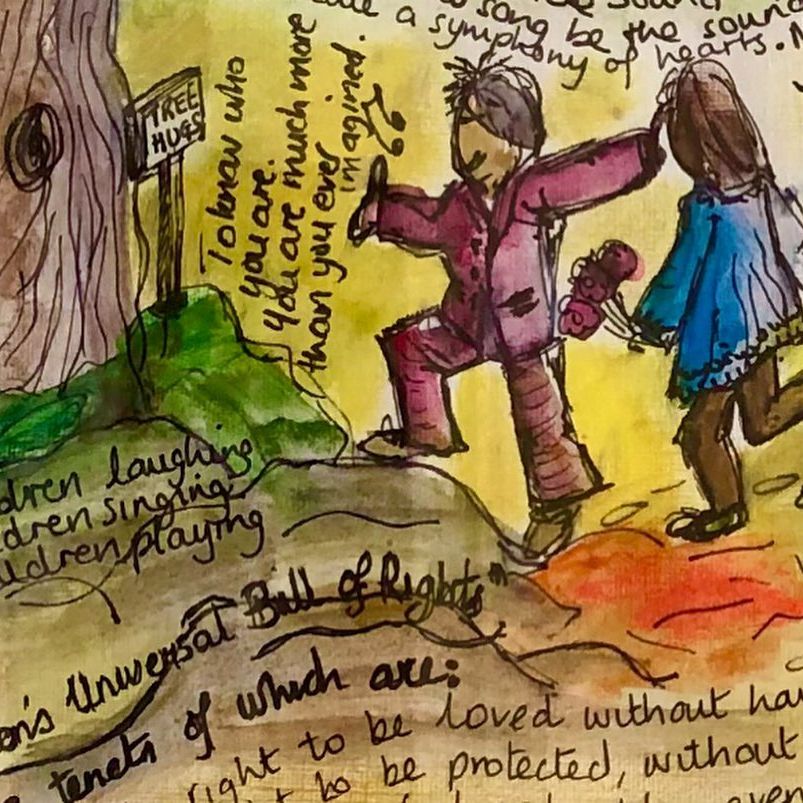 song be the sound
a symphony of hearts.
TREE
HUGS
To know who
you are.
You are much more
than you ever
imagined.
dren laughing
dren singing
ldren playing
Universal Bill of Rights"
tenets of which are:
right to be loved without
to be protected, without